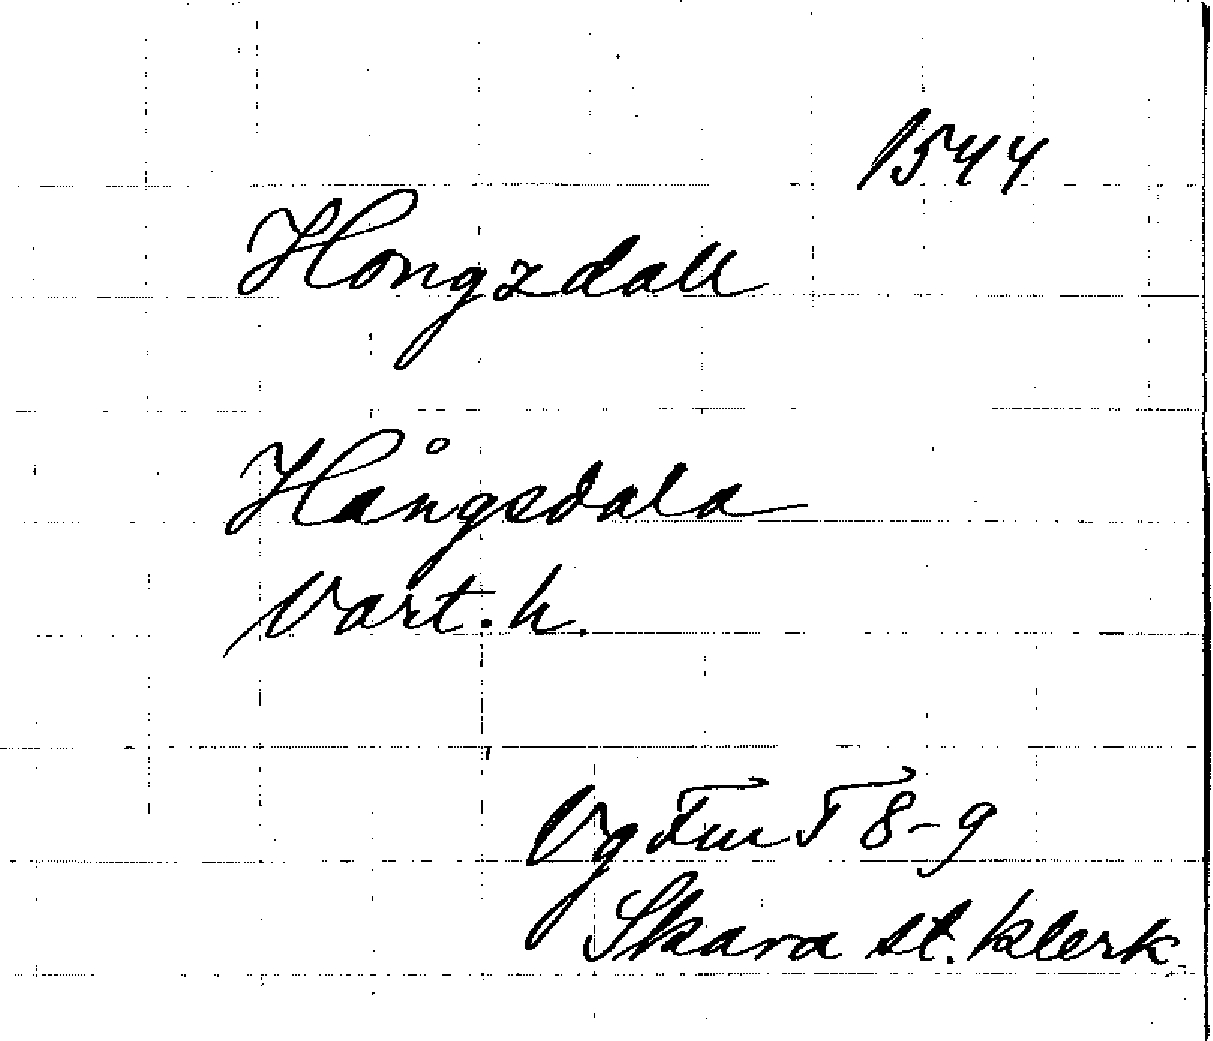 1544
Hongzdall
Hångsdala
Vart. h.
Vg Fm I 8-9
Skara st. klerk.